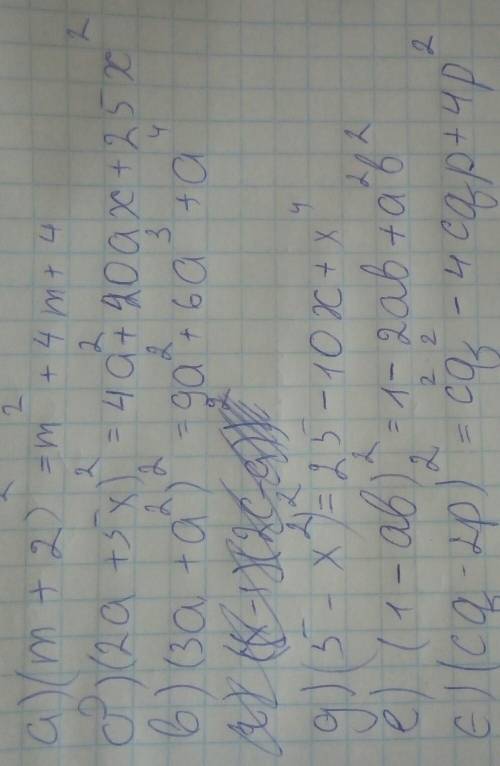 а) (m + 2)² = m² + 4m + 4
б) (2a + 5x)² = 4a² + 20ax + 25x²
в) (3a + a²)² = 9a² + 6a³ + a⁴
д) (5 - x²)² = 25 - 10x + x⁴
е) (1 - ab)² = 1 - 2ab + a²b²
є) (cq - 2p)² = c²q² - 4cqp + 4p²